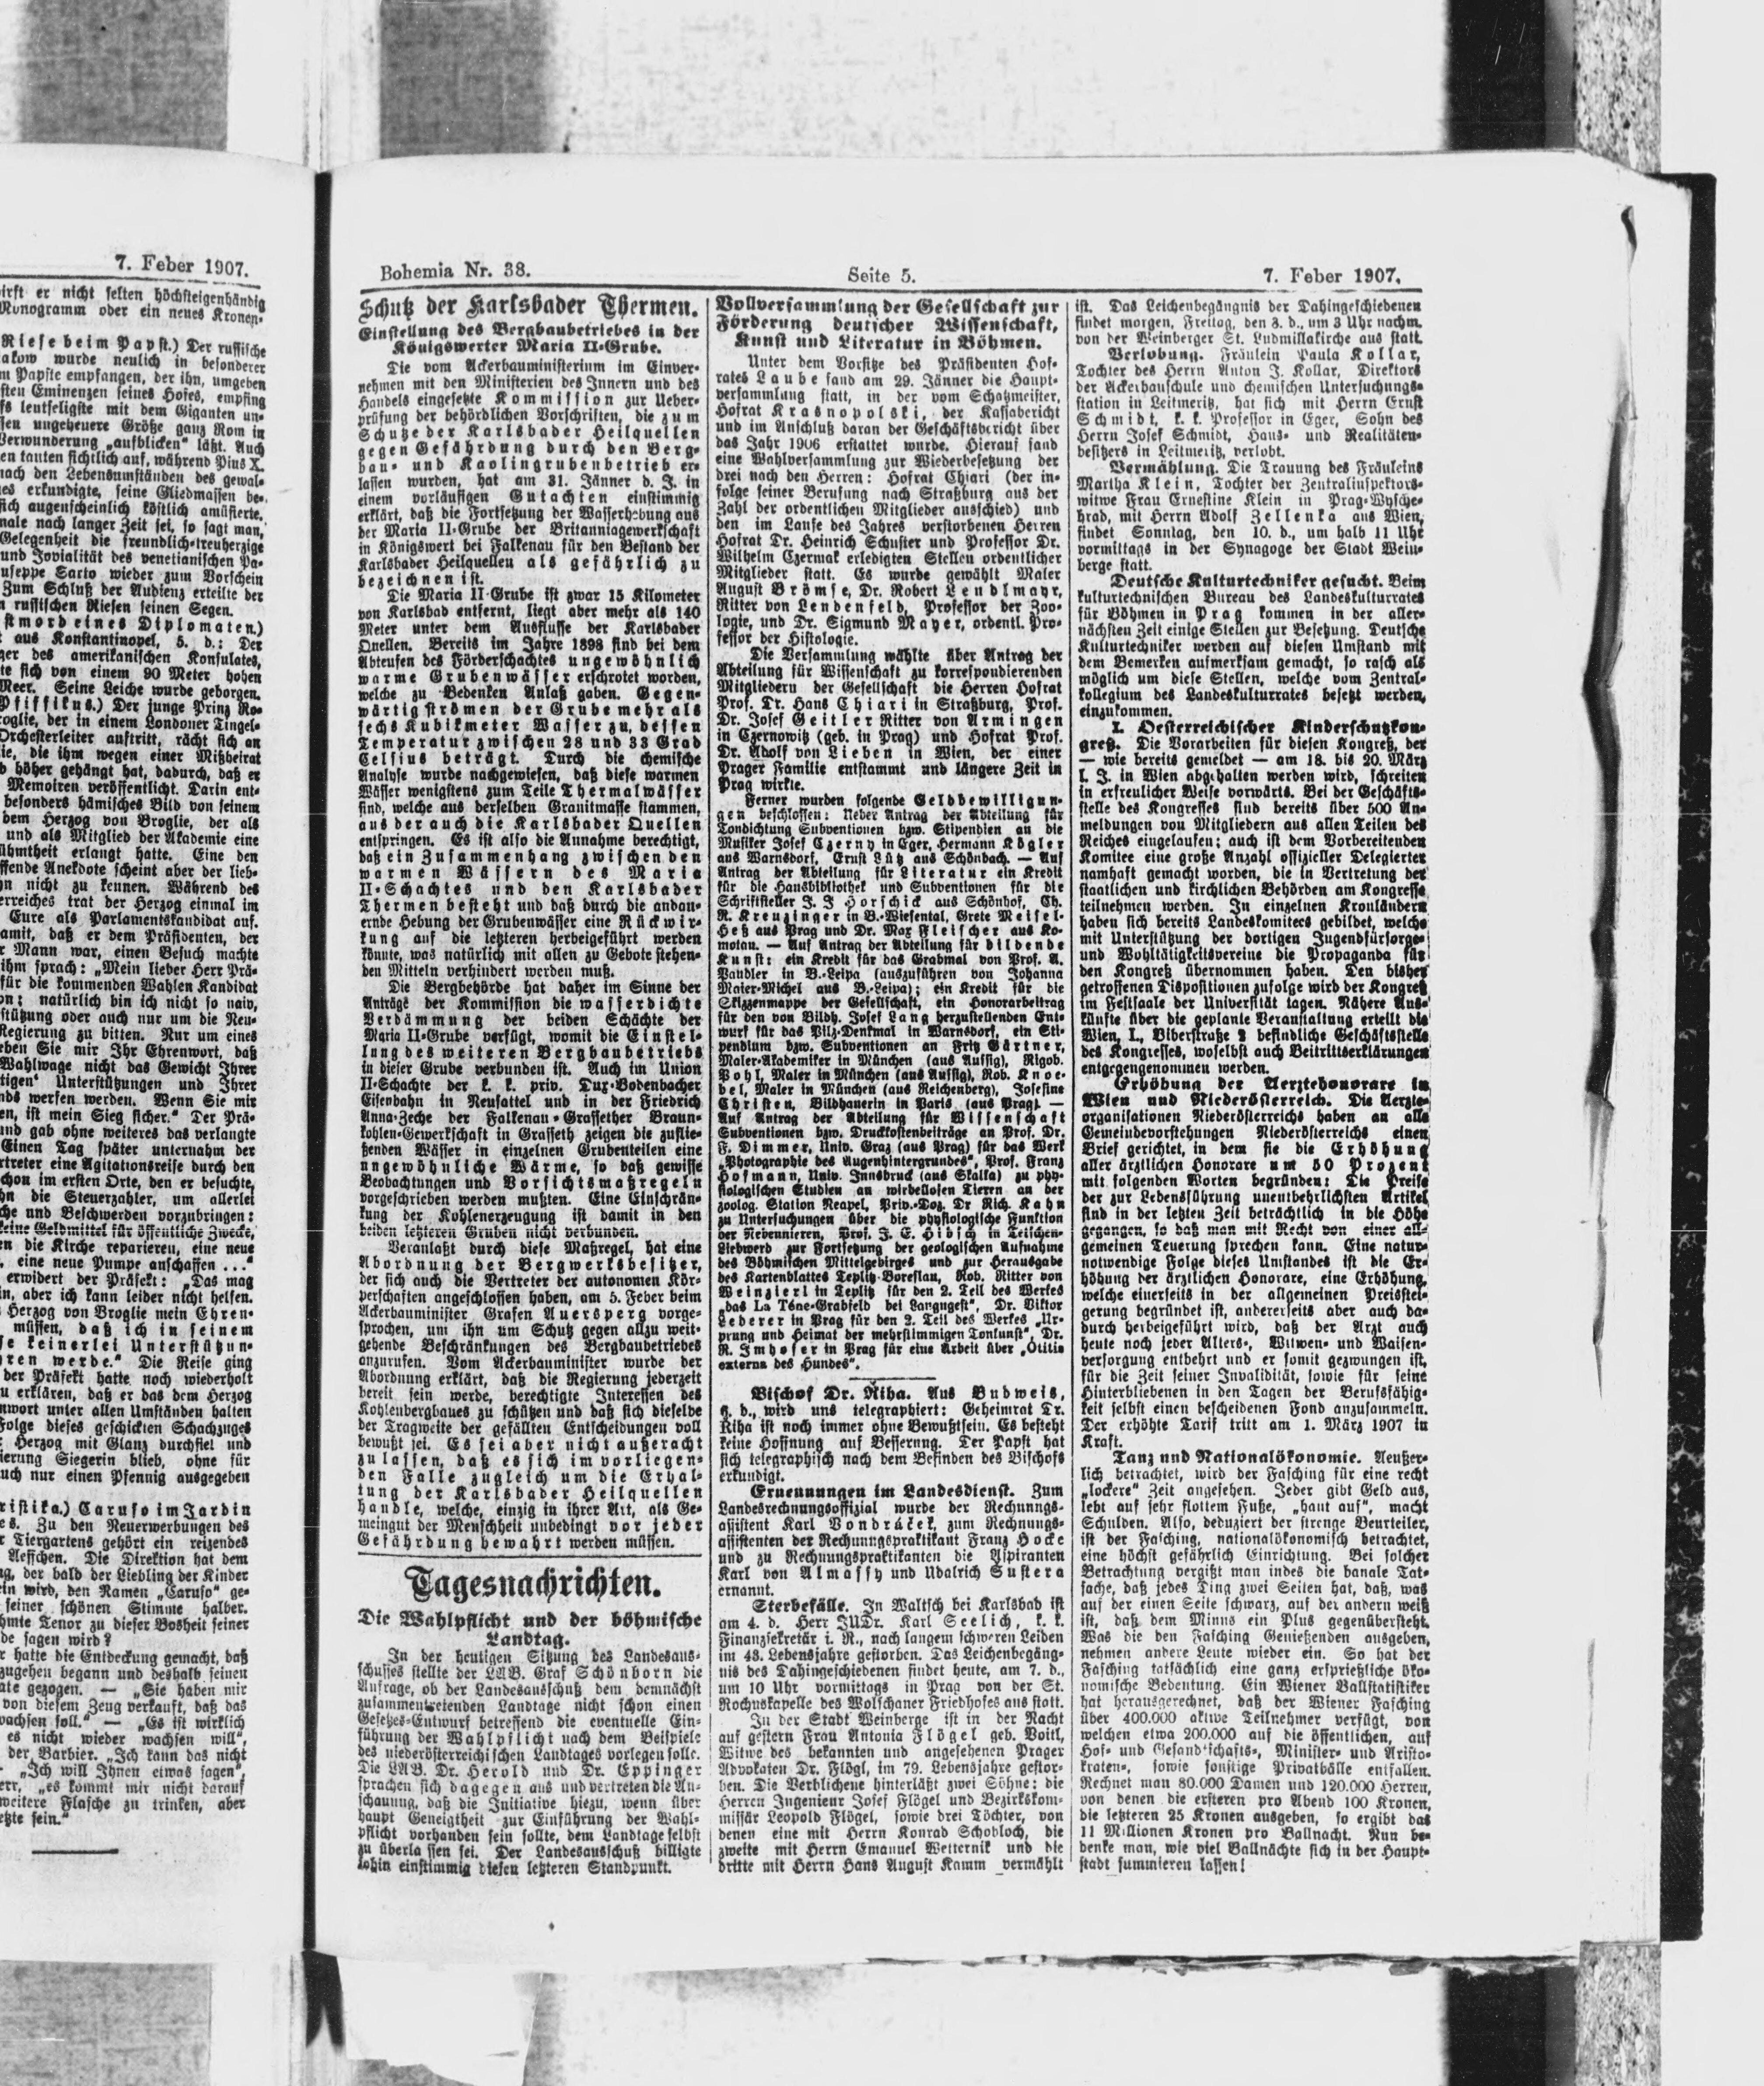 7. Feber 1907.
irft er nicht selten höchsteigenhändig
Monogramm oder ein neues Kronen-
Riese beim Papst.) Der russische
akow wurde neulich in besonderer
m Papste empfangen, der ihn, umgeben
sten Eminenzen seines Hofes, empfing
fs leutseligste mit dem Giganten un-
sen ungeheuere Größe ganz Rom in
Verwunderung „aufblicken“ läßt. Auch
en tauten sichtlich auf, während Pius X.
nach den Lebensumständen des gewal-
es erkundigte, seine Gliedmassen be-
sich augenscheinlich köstlich amüsierte.
nale nach langer Zeit sei, so sagt man,
Gelegenheit die freundlich-treuherzige
und Jovialität des venetianischen Pa-
useppe Sarto wieder zum Vorschein
Zum Schluß der Audienz erteilte der
n russischen Riesen seinen Segen.
stmord eines Diplomaten.)
t aus Konstantinopel, 5. d.: Der
ger des amerikanischen Konsulates,
te sich von einem 90 Meter hohen
Meer. Seine Leiche wurde geborgen.
Pfiffikus.) Der junge Prinz Ro-
roglie, der in einem Londoner Tingel-
Orchesterleiter auftritt, rächt sich an
lie, die ihm wegen einer Mißheirat
b höher gehängt hat, dadurch, daß er
Memoiren veröffentlicht. Darin ent-
besonders hämisches Bild von seinem
dem Herzog von Broglie, der als
und als Mitglied der Akademie eine
ühmtheit erlangt hatte. Eine den
ffende Anekdote scheint aber der lieb-
hn nicht zu kennen. Während des
erreiches trat der Herzog einmal im
Eure als Parlamentskandidat auf.
amit, daß er dem Präsidenten, der
r Mann war, einen Besuch machte
ihm sprach: „Mein lieber Herr Prä-
für die kommenden Wahlen Kandidat
on; natürlich bin ich nicht so naiv,
stützung oder auch nur um die Neu-
Regierung zu bitten. Nur um eines
eben Sie mir Ihr Ehrenwort, daß
Wahlwage nicht das Gewicht Ihrer
tigen' Unterstützungen und Ihrer
nds werfen werden. Wenn Sie mir
en, ist mein Sieg sicher.“ Der Prä-
und gab ohne weiteres das verlangte
Einen Tag später unternahm der
rtreter eine Agitationsreise durch den
chon im ersten Orte, den er besuchte,
hn die Steuerzahler, um allerlei
che und Beschwerden vorzubringen:
keine Geldmittel für öffentliche Zwecke,
en die Kirche reparieren, eine neue
, eine neue Pumpe anschaffen ...“
erwidert der Präfekt: „Das mag
in, aber ich kann leider nicht helfen.
Herzog von Broglie mein Ehren-
müssen, daß ich in seinem
se keinerlei Unterstützun-
hren werde.“ Die Reise ging
der Präfekt hatte noch wiederholt
u erklären, daß er das dem Herzog
nwort unter allen Umständen halten
Folge dieses geschickten Schachzuges
: Herzog mit Glanz durchfiel und
ierung Siegerin blieb, ohne für
uch nur einen Pfennig ausgegeben
ristika.) Caruso im Jardin
es. Zu den Neuerwerbungen des
r Tiergartens gehört ein reizendes
Aeffchen. Die Direktion hat dem
ng, der bald der Liebling der Kinder
ein wird, den Namen „Caruso“ ge-
seiner schönen Stimme halber.
hmte Tenor zu dieser Bosheit seiner
de sagen wird?
r hatte die Entdeckung gemacht, daß
zugehen begann und deshalb seinen
ate gezogen. — „Sie haben mir
von diesem Zeug verkauft, daß das
wachsen soll.“ — „Es ist wirklich
es nicht wieder wachsen will“,
der Barbier. „Ich kann das nicht
„Ich will Ihnen etwas sagen“,
err, „es kommt mir nicht darauf
weitere Flasche zu trinken, aber
etzte sein.“
Bohemia Nr. 38.
Seite 5.
7. Feber 1907.
Schutz der Karlsbader Thermen.
Einstellung des Bergbaubetriebes in der
Königswerter Maria II-Grube.
Die vom Ackerbauministerium im Einver-
nehmen mit den Ministerien des Innern und des
Handels eingesetzte Kommission zur Ueber-
prüfung der behördlichen Vorschriften, die zum
Schutze der Karlsbader Heilquellen
gegen Gefährdung durch den Berg-
bau- und Kaolingrubenbetrieb er-
lassen wurden, hat am 31. Jänner d. J. in
einem vorläufigen Gutachten einstimmig
erklärt, daß die Fortsetzung der Wasserhebung aus
der Maria II-Grube der Britanniagewerkschaft
in Königswert bei Falkenau für den Bestand der
Karlsbader Heilquellen als gefährlich zu
bezeichnen ist.
Die Maria II-Grube ist zwar 15 Kilometer
von Karlsbad entfernt, liegt aber mehr als 140
Meter unter dem Ausflusse der Karlsbader
Quellen. Bereits im Jahre 1898 sind bei dem
Abteufen des Förderschachtes ungewöhnlich
warme Grubenwässer erschrotet worden,
welche zu Bedenken Anlaß gaben. Gegen-
wärtig strömen der Grube mehr als
sechs Kubikmeter Wasser zu, dessen
Temperatur zwischen 28 und 33 Grad
Celsius beträgt. Durch die chemische
Analyse wurde nachgewiesen, daß diese warmen
Wässer wenigstens zum Teile Thermalwässer
sind, welche aus derselben Granitmasse stammen,
aus der auch die Karlsbader Quellen
entspringen. Es ist also die Annahme berechtigt,
daß ein Zusammenhang zwischen den
warmen Wässern des Maria
II-Schachtes und den Karlsbader
Thermen besteht und daß durch die andau-
ernde Hebung der Grubenwässer eine Rückwir-
kung auf die letzteren herbeigeführt werden
könnte, was natürlich mit allen zu Gebote stehen-
den Mitteln verhindert werden muß.
Die Bergbehörde hat daher im Sinne der
Anträge der Kommission die wasserdichte
Verdämmung der beiden Schächte der
Maria II-Grube verfügt, womit die Einstel-
lung des weiteren Bergbaubetriebs
in dieser Grube verbunden ist. Auch im Union
II-Schachte der k. k. priv. Dux-Bodenbacher
Eisenbahn in Neusattel und in der Friedrich
Anna-Zeche der Falkenau-Grassether Braun-
kohlen-Gewerkschaft in Grasseth zeigen die zuflie-
ßenden Wässer in einzelnen Grubenteilen eine
ungewöhnliche Wärme, so daß gewisse
Beobachtungen und Vorsichtsmaßregeln
vorgeschrieben werden mußten. Eine Einschrän-
kung der Kohlenerzeugung ist damit in den
beiden letzteren Gruben nicht verbunden.
Veranlaßt durch diese Maßregel, hat eine
Abordnung der Bergwerksbesitzer,
der sich auch die Vertreter der autonomen Kör-
perschaften angeschlossen haben, am 5. Feber beim
Ackerbauminister Grafen Auersperg vorge-
sprochen, um ihn um Schutz gegen allzu weit-
gehende Beschränkungen des Bergbaubetriebes
anzurufen. Vom Ackerbauminister wurde der
Abordnung erklärt, daß die Regierung jederzeit
bereit sein werde, berechtigte Interessen des
Kohlenbergbaues zu schützen und daß sich dieselbe
der Tragweite der gefällten Entscheidungen voll
bewußt sei. Es sei aber nicht außeracht
zu lassen, daß es sich im vorliegen-
den Falle zugleich um die Erhal-
tung der Karlsbader Heilquellen
handle, welche, einzig in ihrer Art, als Ge-
meingut der Menschheit unbedingt vor jeder
Gefährdung bewahrt werden müssen.
Tagesnachrichten.
Die Wahlpflicht und der böhmische
Landtag.
In der heutigen Sitzung des Landesaus-
schusses stellte der LAB. Graf Schönborn die
Anfrage, ob der Landesausschuß dem demnächst
zusammentretenden Landtage nicht schon einen
Gesetzes-Entwurf betreffend die eventuelle Ein-
führung der Wahlpflicht nach dem Beispiele
des niederösterreichischen Landtages vorlegen solle.
Die LAB. Dr. Herold und Dr. Eppinger
sprachen sich dagegen aus und vertreten die An-
schauung, daß die Initiative hiezu, wenn über
haupt Geneigtheit zur Einführung der Wahl-
pflicht vorhanden sein sollte, dem Landtage selbst
zu überlassen sei. Der Landesausschuß billigte
sohin einstimmig diesen letzteren Standpunkt.
Vollversammlung der Gesellschaft zur
Förderung deutscher Wissenschaft,
Kunst und Literatur in Böhmen.
Unter dem Vorsitze des Präsidenten Hof-
rates Laube fand am 29. Jänner die Haupt-
versammlung statt, in der vom Schatzmeister,
Hofrat Krasnopolski, der Kassabericht
und im Anschluß daran der Geschäftsbericht über
das Jahr 1906 erstattet wurde. Hierauf fand
eine Wahlversammlung zur Wiederbesetzung der
drei nach den Herren: Hofrat Chiari (der in-
folge seiner Berufung nach Straßburg aus der
Zahl der ordentlichen Mitglieder ausschied) und
den im Laufe des Jahres verstorbenen Herren
Hofrat Dr. Heinrich Schuster und Professor Dr.
Wilhelm Czermak erledigten Stellen ordentlicher
Mitglieder statt. Es wurde gewählt Maler
August Brömse, Dr. Robert Lendlmayr,
Ritter von Lendenfeld, Professor der Zoo-
logie, und Dr. Sigmund Mayer, ordentl. Pro-
fessor der Histologie.
Die Versammlung wählte über Antrag der
Abteilung für Wissenschaft zu korrespondierenden
Mitgliedern der Gesellschaft die Herren Hofrat
Prof. Dr. Hans Chiari in Straßburg, Prof.
Dr. Josef Geitler Ritter von Armingen
in Czernowitz (geb. in Prag) und Hofrat Prof.
Dr. Adolf von Lieben in Wien, der einer
Prager Familie entstammt und längere Zeit in
Prag wirkte.
Ferner wurden folgende Geldbewilligun-
gen beschlossen: Ueber Antrag der Abteilung für
Tondichtung Subventionen bzw. Stipendien an die
Musiker Josef Czerny in Eger, Hermann Kögler
aus Warnsdorf, Ernst Lütz aus Schönbach. — Auf
Antrag der Abteilung für Literatur ein Kredit
für die Hausbibliothek und Subventionen für die
Schriftsteller J. J. Horschick aus Schönhof, Ch.
R. Kreuzinger in B.-Wiesental, Grete Meisel-
Heß aus Prag und Dr. Max Fleischer aus Ko-
motau. — Auf Antrag der Abteilung für bildende
Kunst: ein Kredit für das Grabmal von Prof. A.
Paudler in B.-Leipa (auszuführen von Johanna
Maier-Michel aus B.-Leipa); ein Kredit für die
Skizzenmappe der Gesellschaft, ein Honorarbeitrag
für den von Bildh. Josef Lang herzustellenden Ent-
wurf für das Pilz-Denkmal in Warnsdorf, ein Sti-
pendium bzw. Subventionen an Fritz Gärtner,
Maler-Akademiker in München (aus Aussig), Rigob.
Pohl, Maler in München (aus Aussig), Rob. Knoe-
bel, Maler in München (aus Reichenberg), Josefine
Christen, Bildhauerin in Paris (aus Prag). —
Auf Antrag der Abteilung für Wissenschaft
Subventionen bzw. Druckkostenbeiträge an Prof. Dr.
F. Dimmer, Univ. Graz (aus Prag) für das Werk
„Photographie des Augenhintergrundes“, Prof. Franz
Hofmann, Univ. Innsbruck (aus Skalka) zu phy-
siologischen Studien an wirbellosen Tieren an der
zoolog. Station Neapel, Priv.-Doz. Dr Rich. Kahn
zu Untersuchungen über die physiologische Funktion
der Nebennieren, Prof. J. E. Hibsch in Tetschen-
Liebwerd zur Fortsetzung der geologischen Aufnahme
des Böhmischen Mittelgebirges und zur Herausgabe
des Kartenblattes Teplitz-Boreslau, Rob. Ritter von
Weinzierl in Teplitz für den 2. Teil des Werkes
„das La Téne-Grabfeld bei Langugest“, Dr. Viktor
Lederer in Prag für den 2. Teil des Werkes „Ur-
sprung und Heimat der mehrstimmigen Tonkunst“, Dr.
R. Imhofer in Prag für eine Arbeit über „Otitis
externa des Hundes“.
Bischof Dr. Řiha. Aus Budweis,
6. d., wird uns telegraphiert: Geheimrat Dr.
Riha ist noch immer ohne Bewußtsein. Es besteht
keine Hoffnung auf Besserung. Der Papst hat
sich telegraphisch nach dem Befinden des Bischofs
erkundigt.
Ernennungen im Landesdienst. Zum
Landesrechnungsoffizial wurde der Rechnungs-
assistent Karl Vondráček, zum Rechnungs-
assistenten der Rechnungspraktikant Franz Hocke
und zu Rechnungspraktikanten die Aspiranten
Karl von Almassy und Udalrich Sustera
ernannt.
Sterbefälle. In Waltsch bei Karlsbad ist
am 4. d. Herr JUDr. Karl Seelich, k. k.
Finanzsekretär i. R., nach langem schweren Leiden
im 43. Lebensjahre gestorben. Das Leichenbegäng-
nis des Dahingeschiedenen findet heute, am 7. d.,
um 10 Uhr vormittags in Prag von der St.
Rochuskapelle des Wolschaner Friedhofes aus statt.
In der Stadt Weinberge ist in der Nacht
auf gestern Frau Antonia Flögel geb. Voitl,
Witwe des bekannten und angesehenen Prager
Advokaten Dr. Flögl, im 79. Lebensjahre gestor-
ben. Die Verblichene hinterläßt zwei Söhne: die
Herren Ingenieur Josef Flögel und Bezirkskom-
missär Leopold Flögel, sowie drei Töchter, von
denen eine mit Herrn Konrad Schobloch, die
zweite mit Herrn Emanuel Wetternik und die
dritte mit Herrn Hans August Kamm vermählt
ist. Das Leichenbegängnis der Dahingeschiedenen
findet morgen, Freitag, den 8. d., um 3 Uhr nachm.
von der Weinberger St. Ludmillakirche aus statt.
Verlobung. Fräulein Paula Kollar,
Tochter des Herrn Anton J. Kollar, Direktors
der Ackerbauschule und chemischen Untersuchungs-
station in Leitmeritz, hat sich mit Herrn Ernst
Schmidt, k. k. Professor in Eger, Sohn des
Herrn Josef Schmidt, Haus- und Realitäten-
besitzers in Leitmeritz, verlobt.
Vermählung. Die Trauung des Fräuleins
Martha Klein, Tochter der Zentralinspektors-
witwe Frau Ernestine Klein in Prag-Wysche-
hrad, mit Herrn Adolf Zellenka aus Wien,
findet Sonntag, den 10. d., um halb 11 Uhr
vormittags in der Synagoge der Stadt Wein-
berge statt.
Deutsche Kulturtechniker gesucht. Beim
kulturtechnischen Bureau des Landeskulturrates
für Böhmen in Prag kommen in der aller-
nächsten Zeit einige Stellen zur Besetzung. Deutsche
Kulturtechniker werden auf diesen Umstand mit
dem Bemerken aufmerksam gemacht, so rasch als
möglich um diese Stellen, welche vom Zentral-
kollegium des Landeskulturrates besetzt werden,
einzukommen.
I. Oesterreichischer Kinderschutzkon-
greß. Die Vorarbeiten für diesen Kongreß, der
— wie bereits gemeldet — am 18. bis 20. März
l. J. in Wien abgehalten werden wird, schreiten
in erfreulicher Weise vorwärts. Bei der Geschäfts-
stelle des Kongresses sind bereits über 500 An-
meldungen von Mitgliedern aus allen Teilen des
Reiches eingelaufen; auch ist dem Vorbereitenden
Komitee eine große Anzahl offizieller Delegierter
namhaft gemacht worden, die in Vertretung der
staatlichen und kirchlichen Behörden am Kongresse
teilnehmen werden. In einzelnen Kronländern
haben sich bereits Landeskomitees gebildet, welche
mit Unterstützung der dortigen Jugendfürsorge-
und Wohltätigkeitsvereine die Propaganda für
den Kongreß übernommen haben. Den bisher
getroffenen Dispositionen zufolge wird der Kongreß
im Festsaale der Universität tagen. Nähere Aus-
künfte über die geplante Veranstaltung erteilt die
Wien, I., Biberstraße 2 befindliche Geschäftsstelle
des Kongresses, woselbst auch Beitrittserklärungen
entgegengenommen werden.
Erhöhung der Aerztehonorare in
Wien und Niederösterreich. Die Aerzte-
organisationen Niederösterreichs haben an alle
Gemeindevorstehungen Niederösterreichs einen
Brief gerichtet, in dem sie die Erhöhung
aller ärztlichen Honorare um 50 Prozent
mit folgenden Worten begründen: Die Preise
der zur Lebensführung unentbehrlichsten Artikel
sind in der letzten Zeit beträchtlich in die Höhe
gegangen, so daß man mit Recht von einer all-
gemeinen Teuerung sprechen kann. Eine natur-
notwendige Folge dieses Umstandes ist die Er-
höhung der ärztlichen Honorare, eine Erhöhung,
welche einerseits in der allgemeinen Preisstei-
gerung begründet ist, andererseits aber auch da-
durch herbeigeführt wird, daß der Arzt auch
heute noch jeder Alters-, Witwen- und Waisen-
versorgung entbehrt und er somit gezwungen ist,
für die Zeit seiner Invalidität, sowie für seine
Hinterbliebenen in den Tagen der Berufsfähig-
keit selbst einen bescheidenen Fond anzusammeln.
Der erhöhte Tarif tritt am 1. März 1907 in
Kraft.
Tanz und Nationalökonomie. Aeußer-
lich betrachtet, wird der Fasching für eine recht
„lockere“ Zeit angesehen. Jeder gibt Geld aus,
lebt auf sehr flottem Fuße, „haut auf“, macht
Schulden. Also, deduziert der strenge Beurteiler,
ist der Fasching, nationalökonomisch betrachtet,
eine höchst gefährlich Einrichtung. Bei solcher
Betrachtung vergißt man indes die banale Tat-
sache, daß jedes Ding zwei Seiten hat, daß, was
auf der einen Seite schwarz, auf der andern weiß
ist, daß dem Minus ein Plus gegenübersteht.
Was die den Fasching Genießenden ausgeben,
nehmen andere Leute wieder ein. So hat der
Fasching tatsächlich eine ganz ersprießliche öko-
nomische Bedeutung. Ein Wiener Ballstatistiker
hat herausgerechnet, daß der Wiener Fasching
über 400.000 aktive Teilnehmer verfügt, von
welchen etwa 200.000 auf die öffentlichen, auf
Hof- und Gesandtschafts-, Minister- und Aristo-
kraten-, sowie sonstige Privatbälle entfallen.
Rechnet man 80.000 Damen und 120.000 Herren,
von denen die ersteren pro Abend 100 Kronen,
die letzteren 25 Kronen ausgeben, so ergibt das
11 Millionen Kronen pro Ballnacht. Nun be-
denke man, wie viel Ballnächte sich in der Haupt-
stadt summieren lassen!